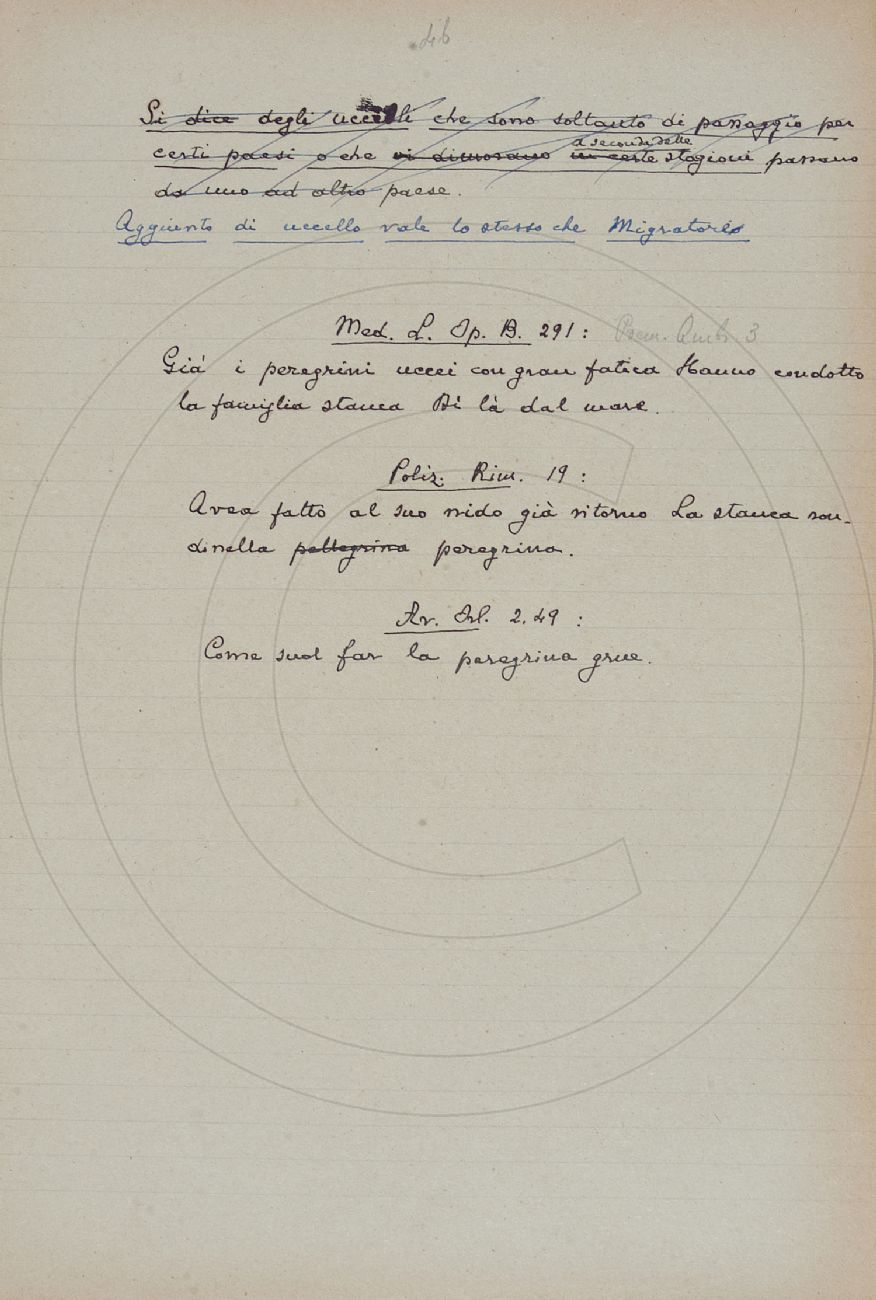 46
Si dice degli uccelli che sono soltanto di passaggio per
a seconda delle
certi paesi o che vi dimorano in certe stagioni passano
da uno ad altro paese.
Aggiunto di uccello vale lo stesso che Migratorio
Med. L. Op. B. 291: Poem. Amb. 3
Già i peregrini uccei con gran fatica Hanno condotto
la famiglia stanca Di là dal mare.
Poliz. Rim. 19:
Avea fatto al suo nido già ritorno La stanca ron-
dinella pellegrina peregrina.
Ar. Orl. 2.49:
Come suol far la peregrina grue.